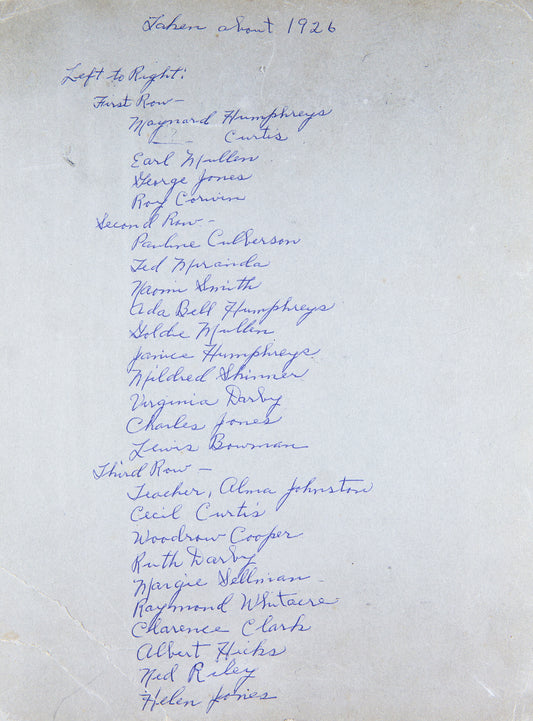 Taken about 1926
Left to Right:
First Row –
Maynard Humphreys
? Curtis
Earl Mullen
George Jones
Roy Corwin
Second Row –
Pauline Culberson
Ted Miranda
Naomi Smith
Ada Bell Humphreys
Goldie Mullen
Janice Humphreys
Mildred Skinner
Virginia Darby
Charles Jones
Lewis Bowman
Third Row –
Teacher, Alma Johnston
Cecil Curtis
Woodrow Cooper
Ruth Darby
Margie Sellman
Raymond Whitacre
Clarence Clark
Albert Hicks
Ned Riley
Helen Jones